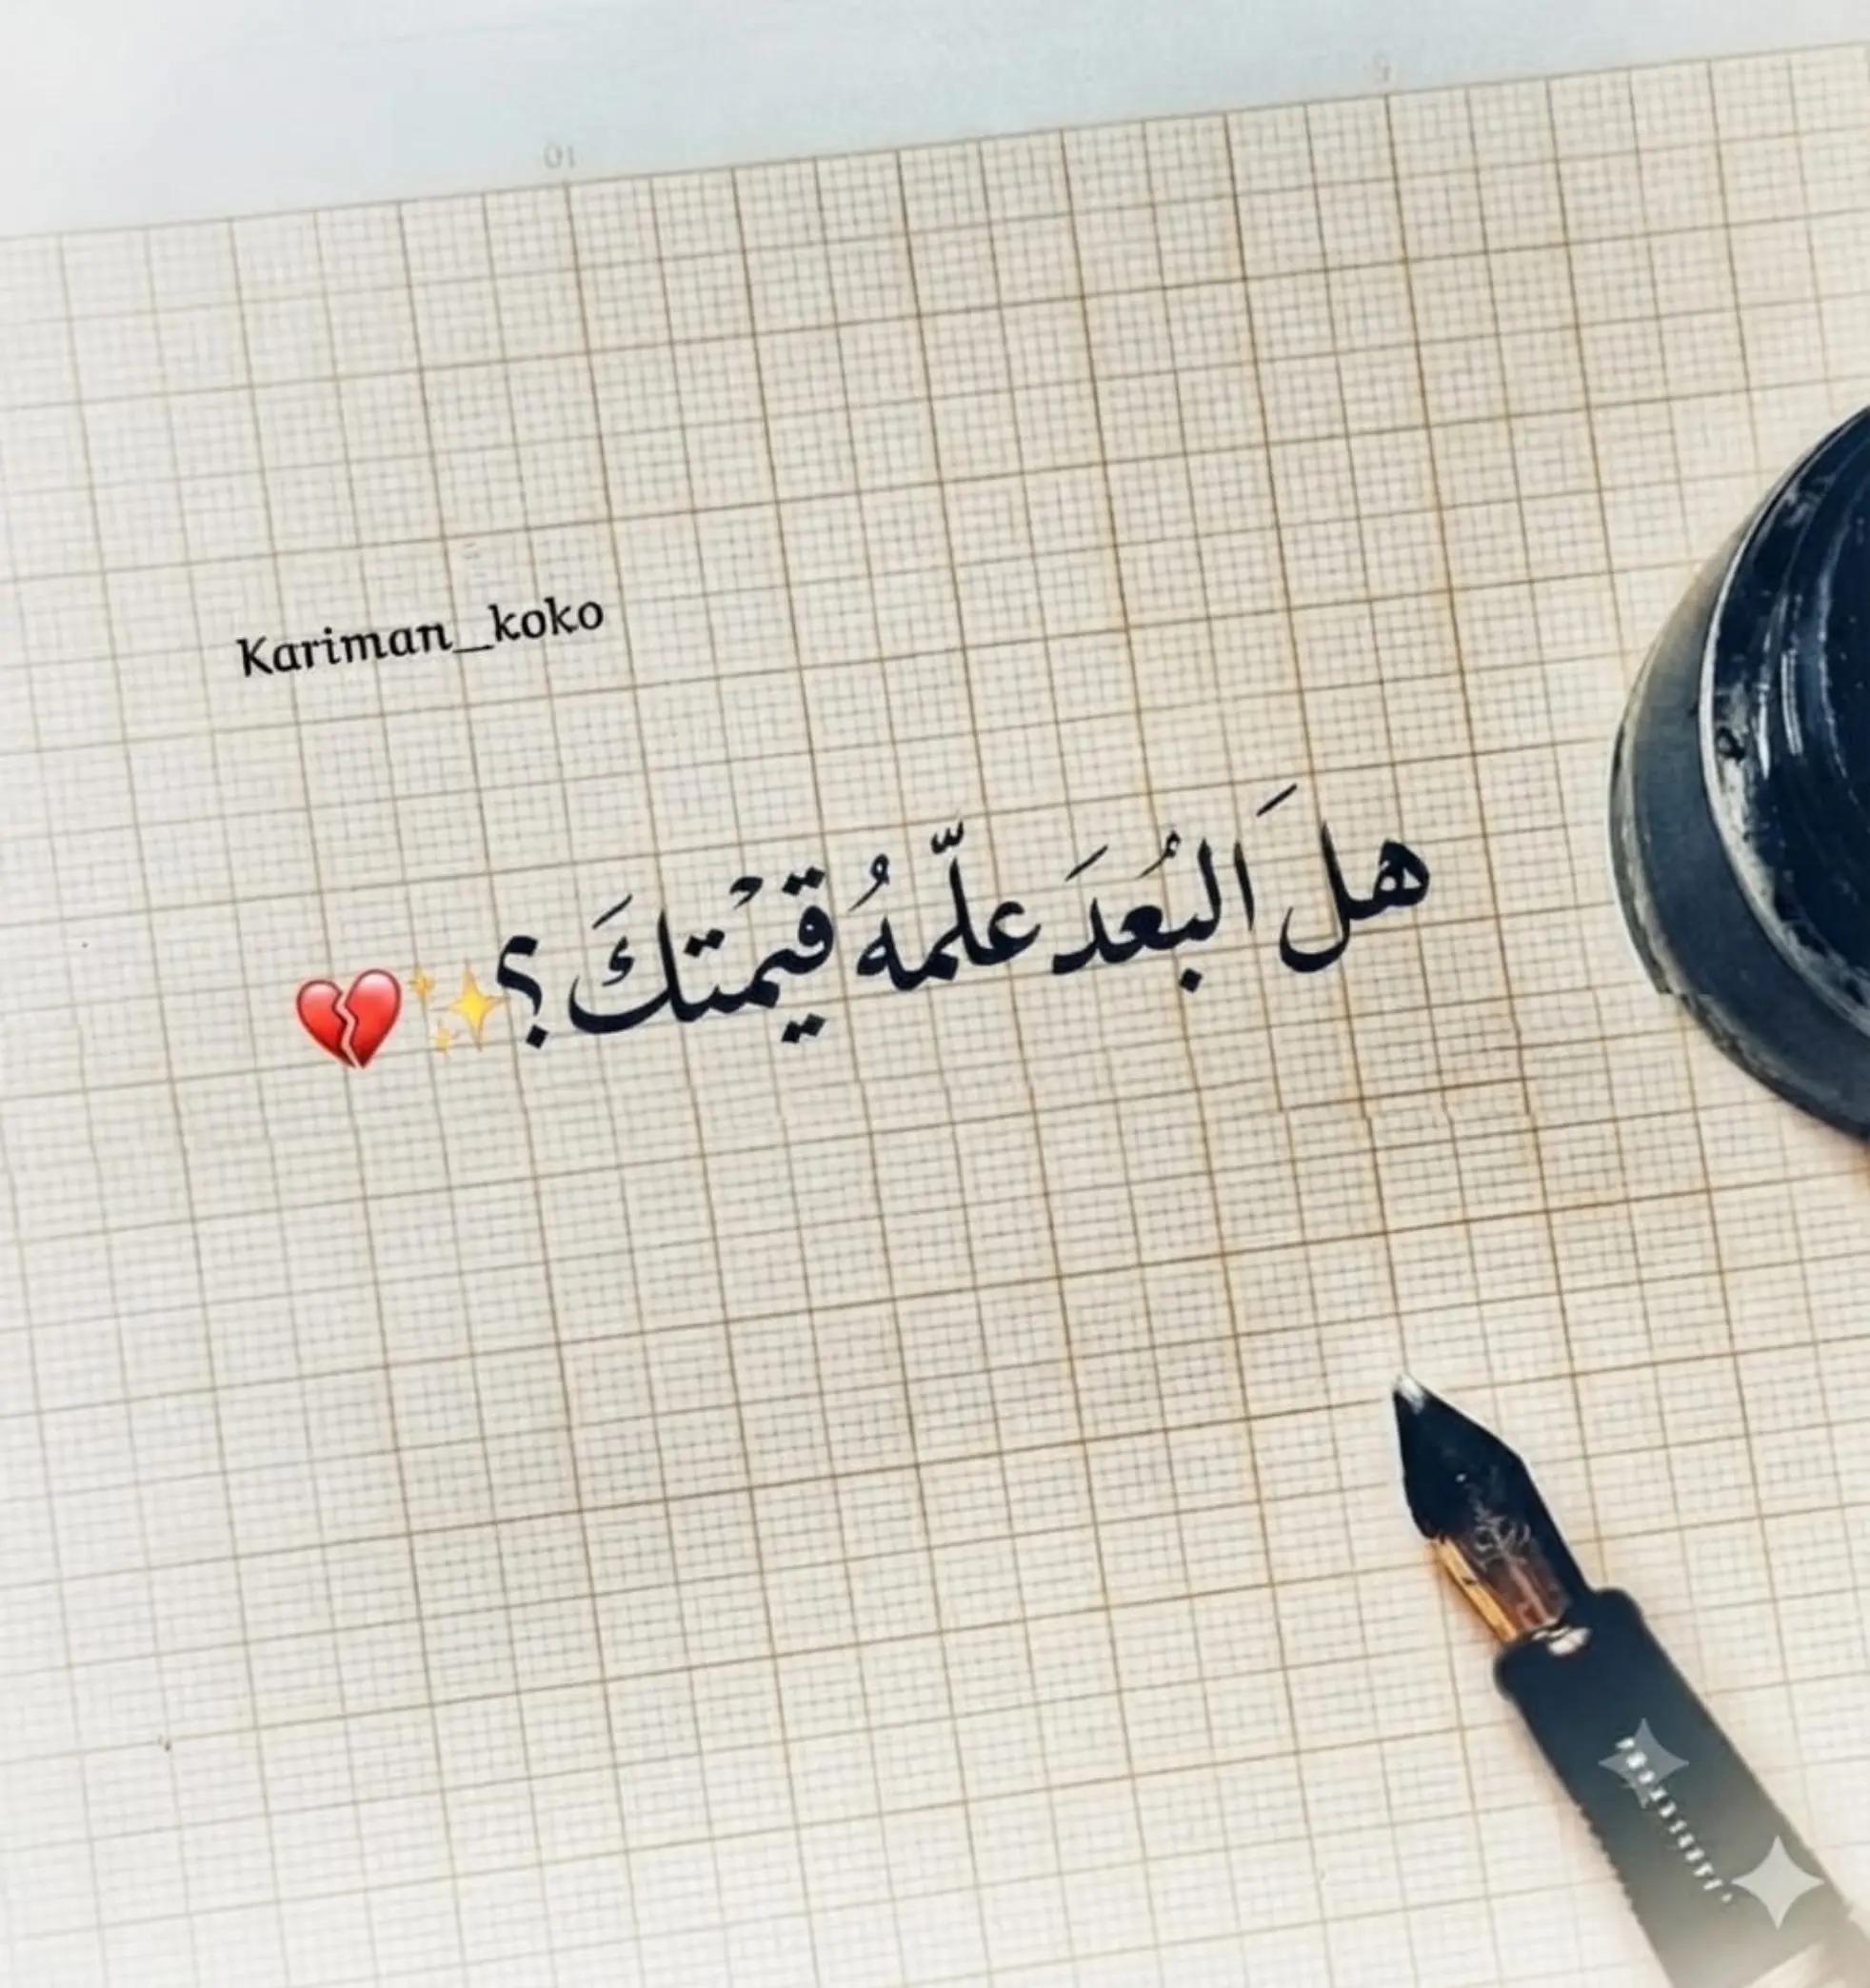 Kariman_koko
هلَ البُعدَ علّمهُ قيمْتكَ ؟✨💔